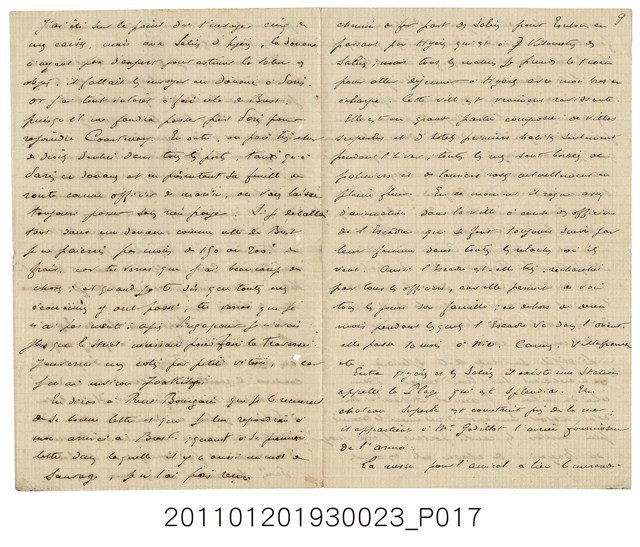 J'ai été sur le point de t'envoyer cinq de
mes caisses, mais aux Salins d'Hyères, la douane
n'ayant pas d'expert pour estimer la valeur des
objets, il fallait les envoyer en douane à Paris.
or j'ai tout intérêt à faire cela de Brest,
puisqu'il me faudra passer par Paris pour
rejoindre Courtenay. En outre, on paie très cher
de droits d'entrée dans tous les ports, tandis qu'à
Paris en douane et en présentant sa feuille de
route comme officier de marine, on vous laisse
toujours passer sans rien payer. Si je déballais
tout dans une douane comme celle de Brest
je ne paierais pas moins de 150 ou 200 f de
frais, car tu verras que j'ai beaucoup de
choses; et quand je te dis que toutes mes
économies y ont passé, tu verras que je
n'ai pas menti: après Singapour je n'avais
plus que le strict nécessaire pour faire la traversée.
J'enverrai mes colis par petite vitesse, car
j'en ai environ 700 kilogs.
Tu diras à René Bourgoin que je le remercie
de sa bonne lettre et que je lui répondrai à
mon arrivée à Brest; quant à sa première
lettre dans laquelle il y a aussi un mot de
Sauvage, je ne l'ai pas reçue
9
chemin de fer part des Salins pour Toulon en
passant par Hyères qui est à 7 kilomètres des
Salins; aussi tous les matins je prends le train
pour aller déjeuner à Hyères avec mon
Cette ville est vraiment ravissante.
Elle est en grande partie composée de villas
superbes et d'hôtels princiers habités seulement
pendant l'hiver; toutes les rues sont bordées de
palmiers et de lauriers roses actuellement en
pleine fleur. En ce moment il règne assez
d'animation dans la ville à cause des officiers
de l'Escadre qui se font toujours suivre par
leur femme dans toutes les relâches où ils
vont. Aussi l'Escadre est-elle très recherchée
par tous les officiers, car elle permet de voir
tous les jours sa famille; en dehors de deux
mois pendant lesquels l'Escadre va dans l'orient,
elle passe 10 mois à Nice, Cannes, Villefranche
etc.
Entre Hyères et les Salins il existe une station
appelée la Plage qui est splendide. Un
château superbe est construit près de la mer;
il appartient à Mr Godillot l'ancien fournisseur
de l'armée.
La messe pour l'amiral a lieu le mercredi
201101201930023_P017